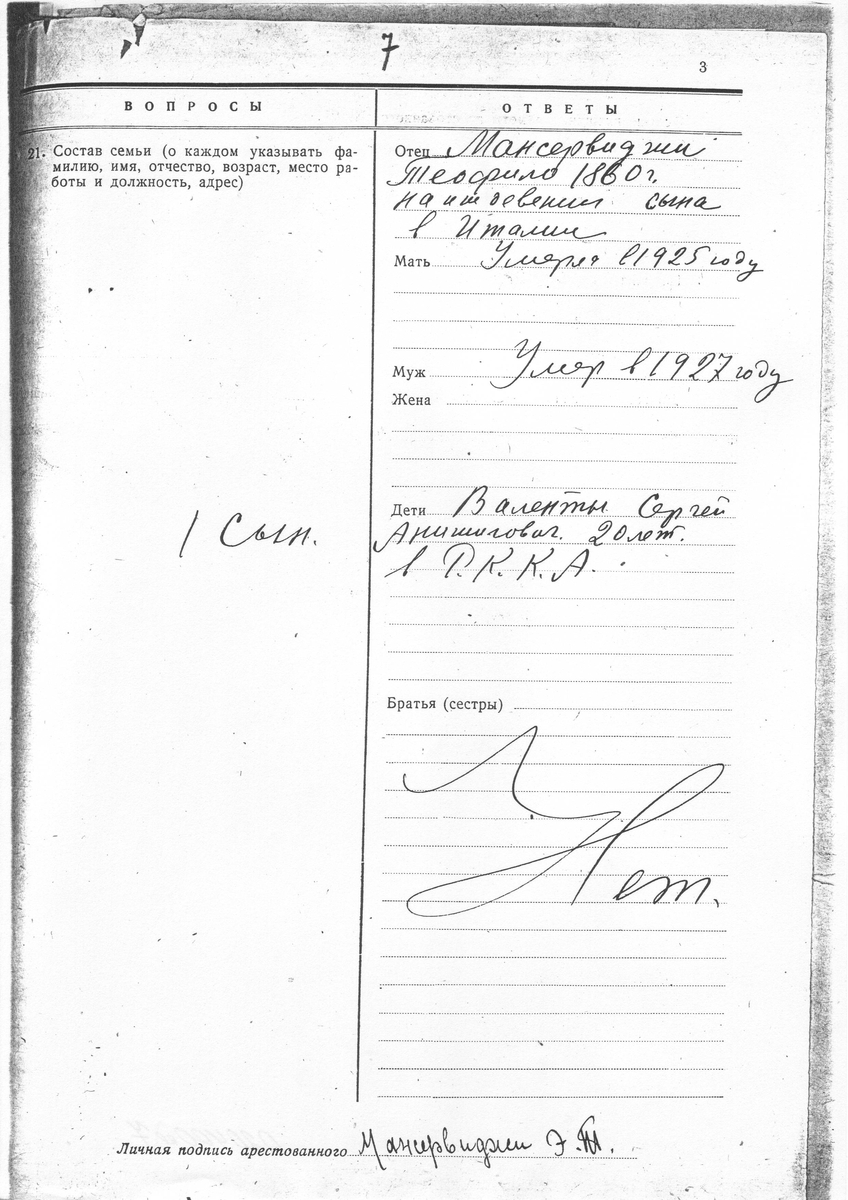 7
3
ВОПРОСЫ
ОТВЕТЫ
21. Состав семьи (о каждом указывать фа-
милию, имя, отчество, возраст, место ра-
боты и должность, адрес)
Отец Мансервиджи
Теофило 1860 г.
на иждевении сына
в Италии
Мать Умерла в 1925 году
Муж Умер в 1927 году
Жена
1 сын.
Дети Валенты Сергей
20 лет.
в Р.К.К.А.
Братья (сестры)
Нет.
Личная подпись арестованного Мансервиджи Э.Т.